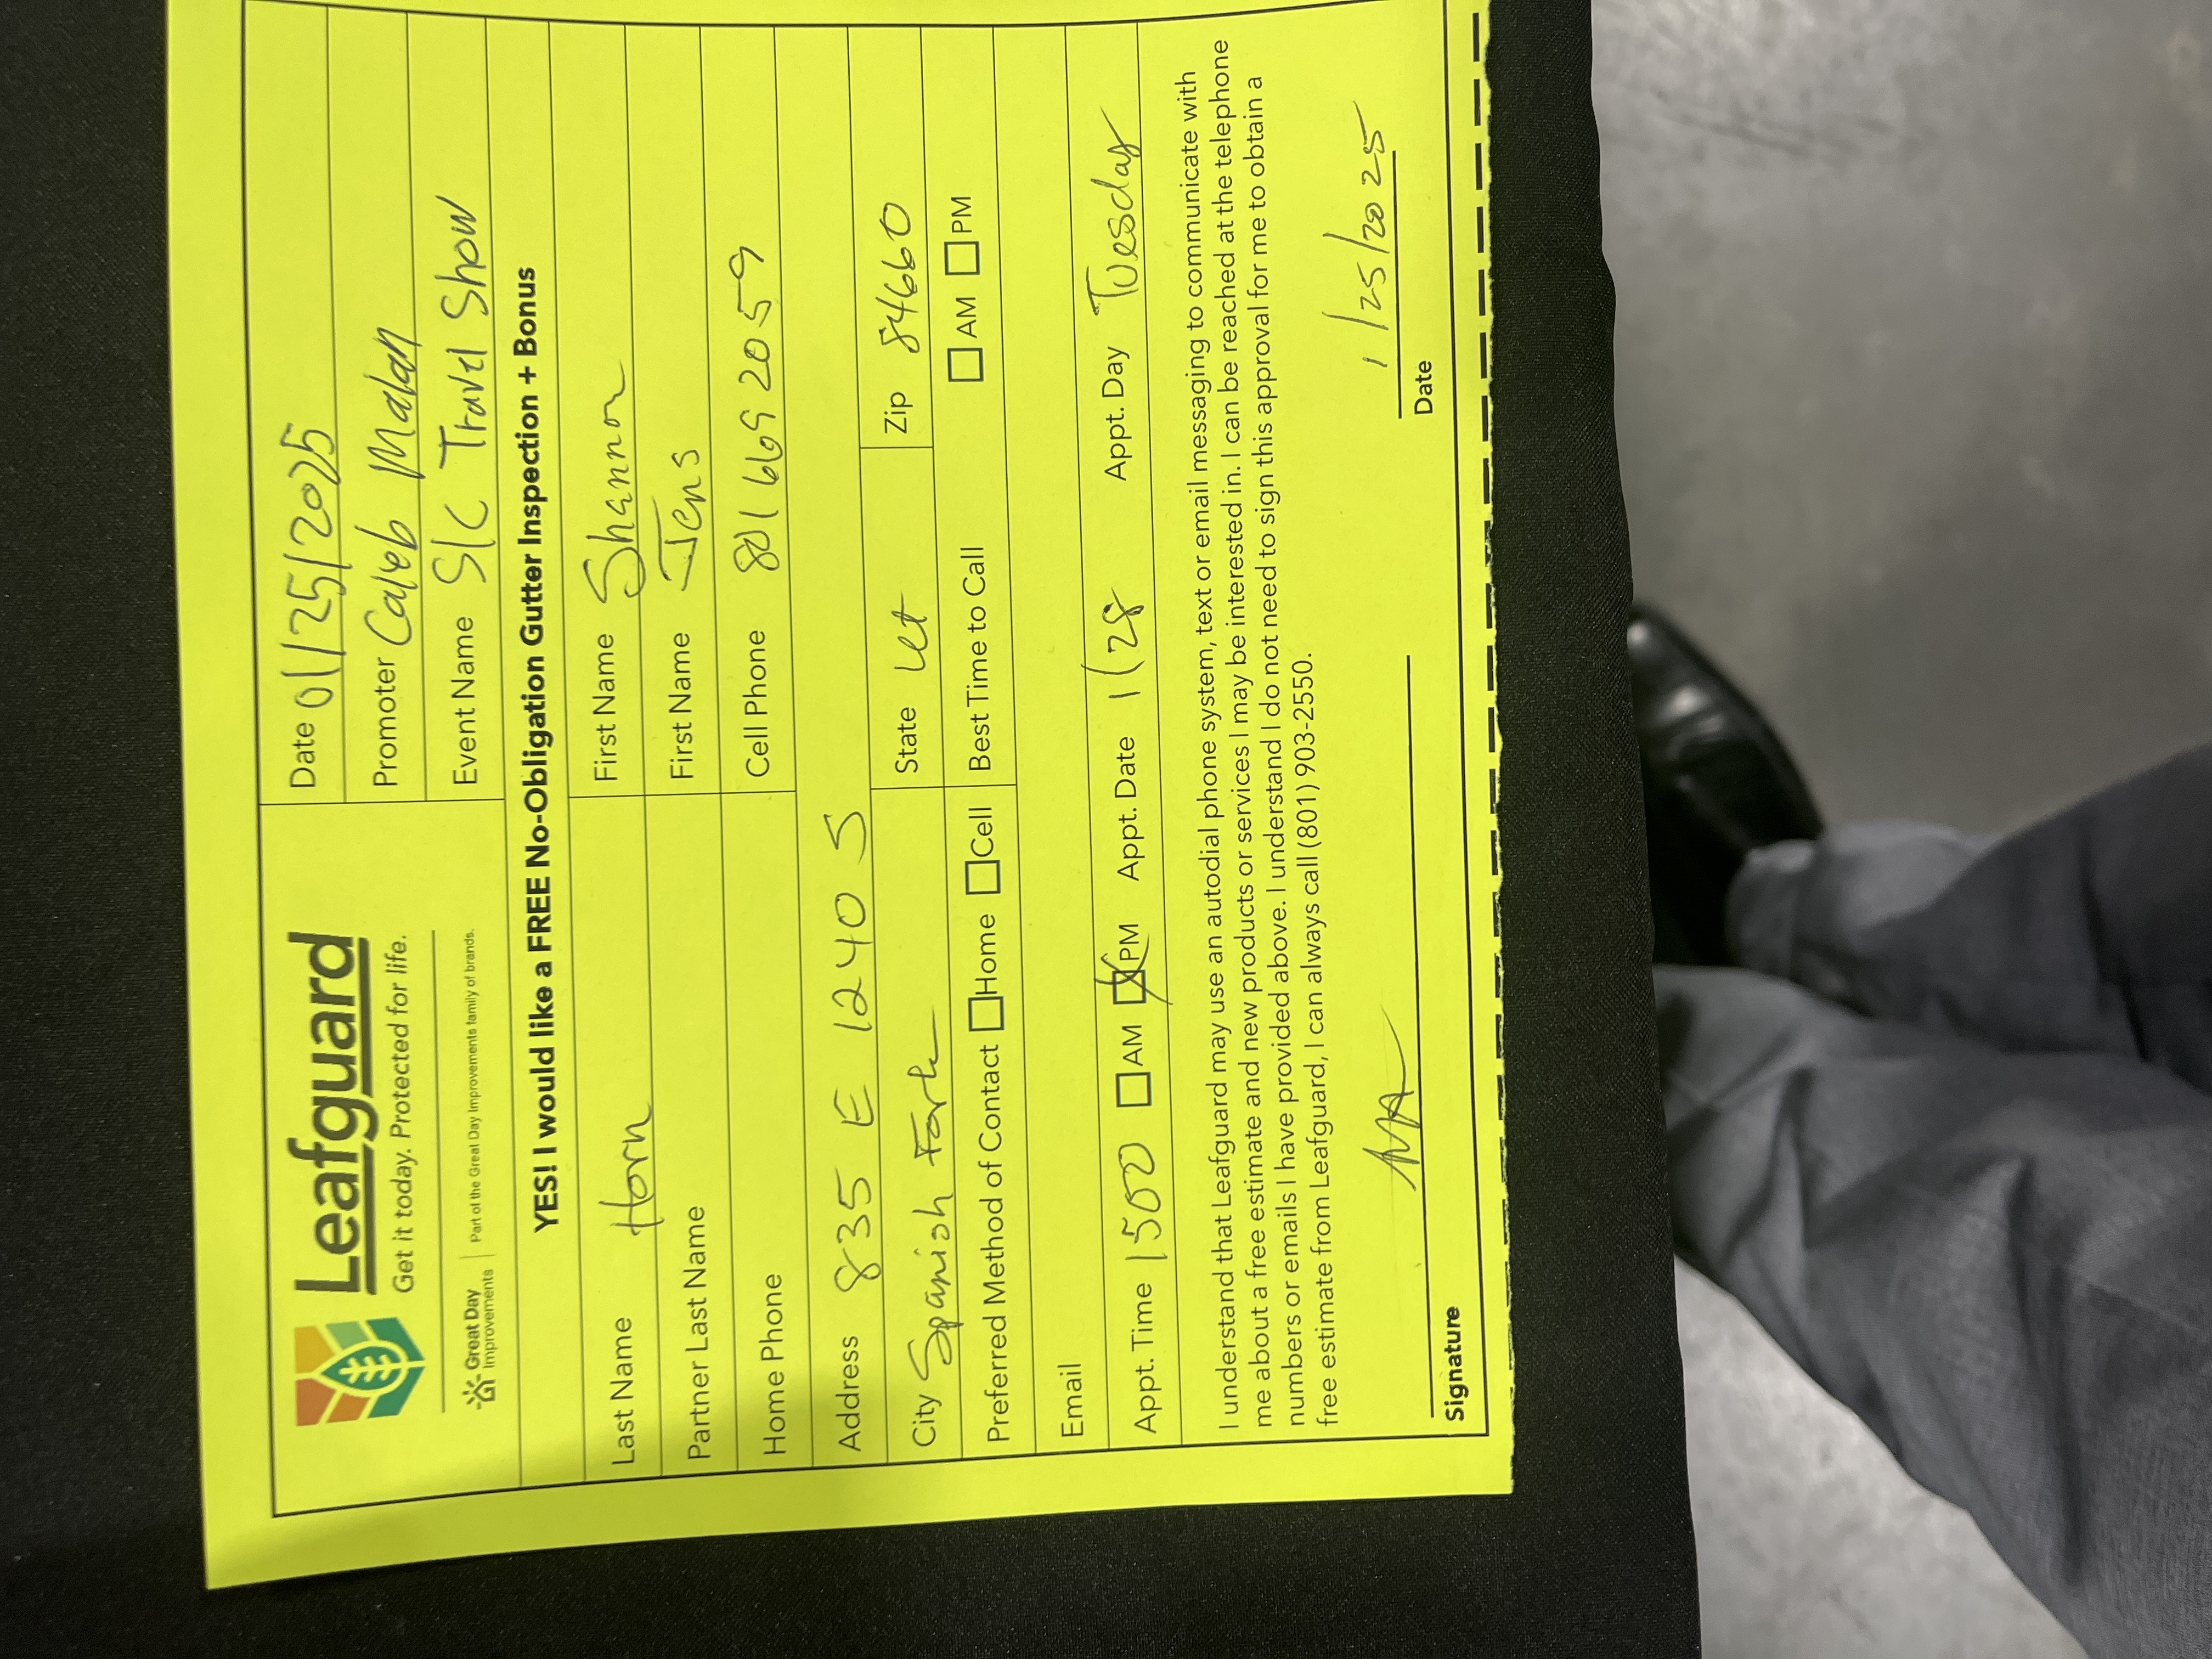 Leafguard
Get it today. Protected for life.
Great Day Improvements
Part of the Great Day Improvements family of brands.
Date 01/25/2025
Promoter Caleb Malan
Event Name SLC Travel Show
YES! I would like a FREE No-Obligation Gutter Inspection + Bonus
Last Name Horn
First Name Shannon
Partner Last Name
First Name Jens
Home Phone
Cell Phone 801 669 2059
Address 835 E 1240 S
City Spanish Fork
State Ut
Zip 84660
Preferred Method of Contact Home Cell
Best Time to Call AM PM
Email
Appt. Time 1500 AM PM Appt. Date 1/28 Appt. Day Tuesday
I understand that Leafguard may use an autodial phone system, text or email messaging to communicate with
me about a free estimate and new products or services I may be interested in. I can be reached at the telephone
numbers or emails I have provided above. I understand I do not need to sign this approval for me to obtain a
free estimate from Leafguard, I can always call (801) 903-2550.
1/25/2025
Signature
Date